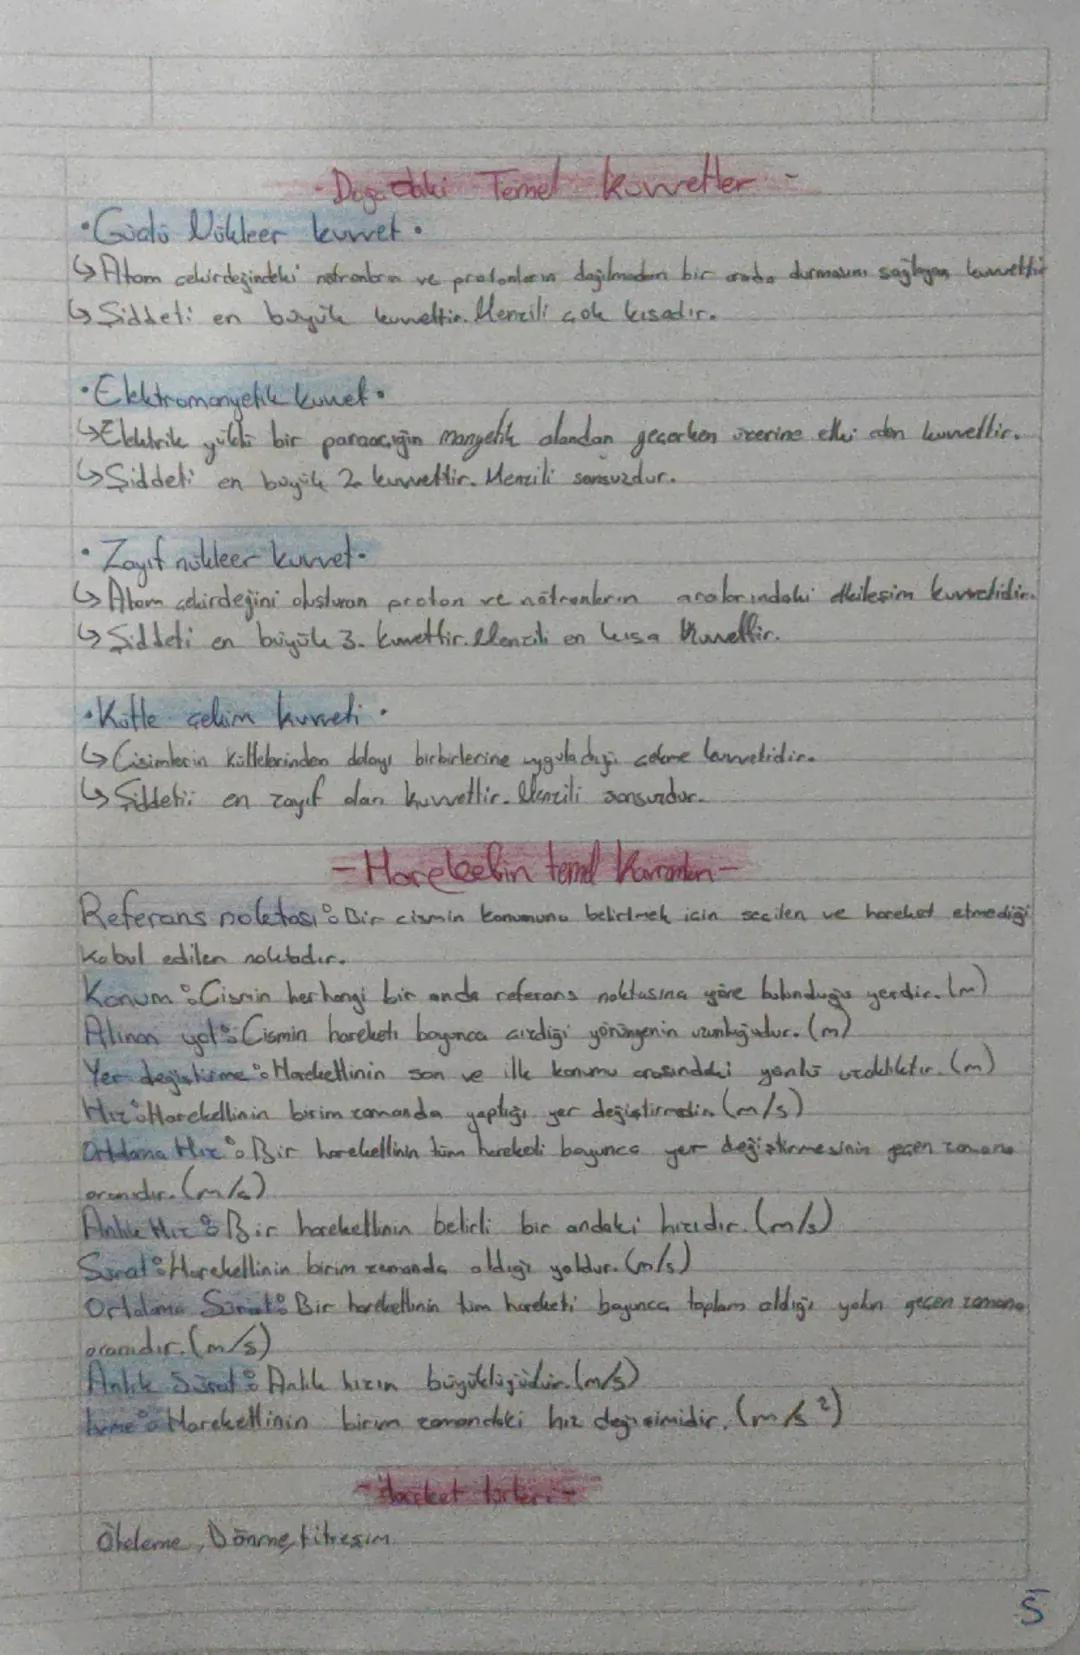 - Doğadaki Temel kuvvetler -
• Güçlü Nükleer kuvvet •
↳ Atom çekirdeğindeki nötronların ve protonların dağılmadan bir arada durmasını sağlayan kuvvettir
↳ Şiddeti en büyük kuvvettir. Menzili çok kısadır.
• Elektromanyetik kuvvet •
↳ Elektrik yüklü bir parçacığın manyetik alandan geçerken üzerine etki eden kuvvettir.
↳ Şiddeti en büyük 2. kuvvettir. Menzili sonsuzdur.
• Zayıf nükleer kuvvet •
↳ Atom çekirdeğini oluşturan proton ve nötronların aralarındaki etkileşim kuvvetidir.
↳ Şiddeti en büyük 3. kuvvettir. Menzili en kısa kuvvettir.
• Kütle çekim kuvveti •
↳ Cisimlerin kütlelerinden dolayı birbirlerine uyguladığı çekme kuvvetidir.
↳ Şiddeti en zayıf olan kuvvettir. Menzili sonsuzdur.
- Hareketin temel Kavramları -
Referans noktası: Bir cismin konumunu belirlmek için seçilen ve hareket etmediği
kabul edilen noktadır.
Konum: Cismin herhangi bir anda referans noktasına göre bulunduğu yerdir. (m)
Alınan yol: Cismin hareketi boyunca çizdiği yörüngenin uzunluğudur. (m)
Yer değiştirme: Hareketlinin son ve ilk konumu arasındaki yönlü uzaklıktır. (m)
Hız: Hareketlinin birim zamanda yaptığı yer değiştirmedir. (m/s)
Ortalama Hız: Bir hareketlinin tüm hareketi boyunca yer değiştirmesinin geçen zamana
oranıdır. (m/s)
Anlık Hız: Bir hareketlinin belirli bir andaki hızıdır. (m/s)
Sürat: Hareketlinin birim zamanda aldığı yoldur. (m/s)
Ortalama Sürat: Bir hareketlinin tüm hareketi boyunca toplam aldığı yolun geçen zamana
oranıdır. (m/s)
Anlık Sürat: Anlık hızın büyüklüğüdür. (m/s)
İvme: Hareketlinin birim zamandaki hız değişimidir. (m/s²)
- Hareket türleri -
Öteleme, Dönme, titreşim
5